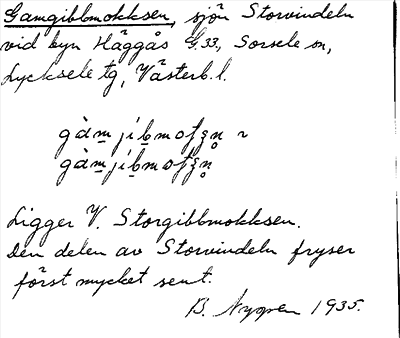 Gamgibbmokksen, sjön Storvindeln
vid byn Häggås G.33, Sorsele sn,
Lycksele tg, Västerb.l.
gàm̲jib̲mofʒn̥ ~
gàm̲jib̲mofʒn̥
Ligger V. Storgibbmokksen.
Den delen av Storvindeln fryser
först mycket sent.
B. Nygren 1935.